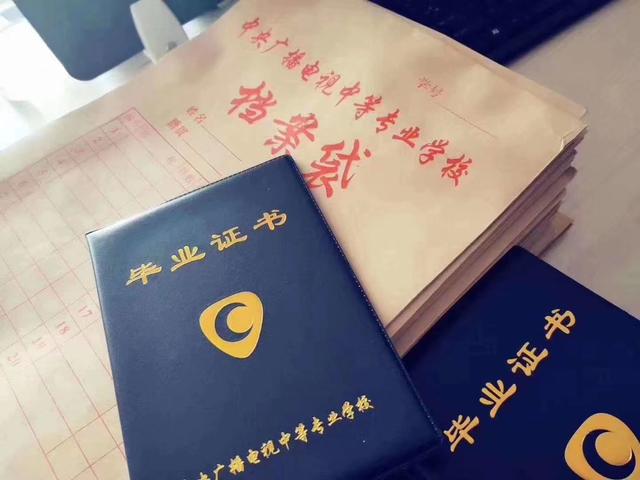 中央广播电视中等专业学校
学号
档案袋
姓名
毕业证书
中央广播电视中等专业学校
毕业证书
17
18
19
20